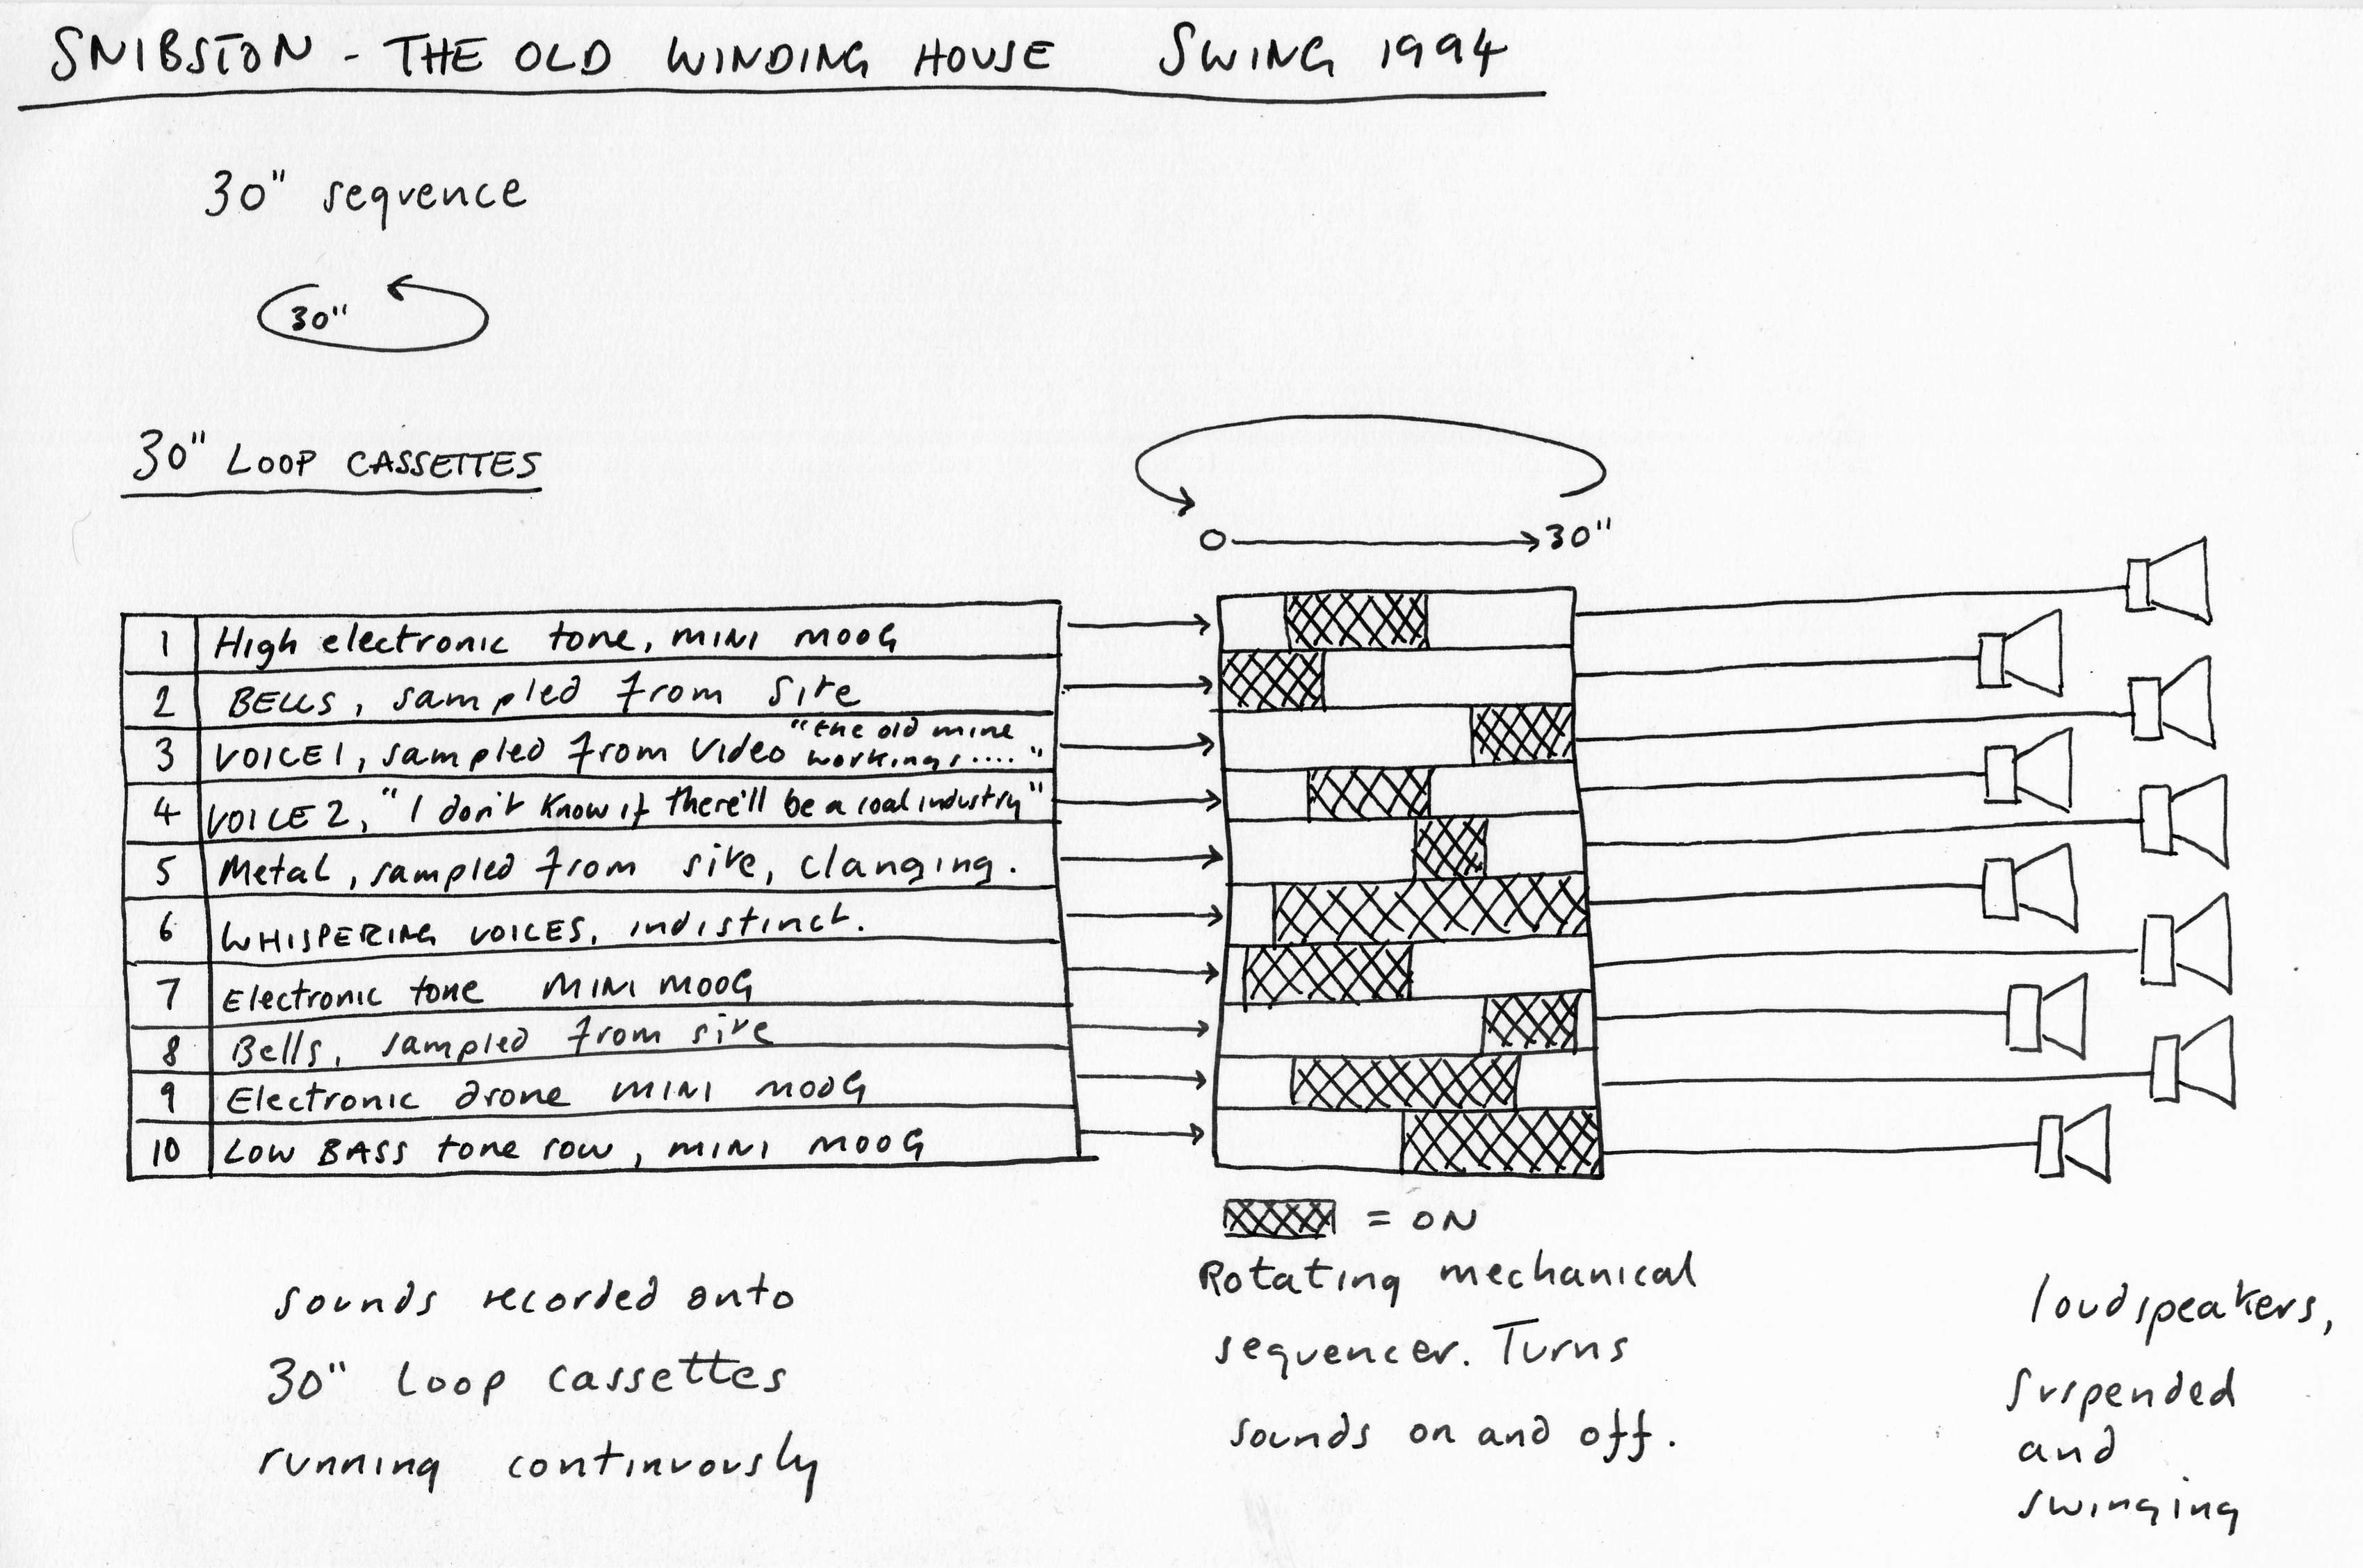 SNIBSTON - THE OLD WINDING HOUSE SWING 1994
30" sequence
30"
30" LOOP CASSETTES
0 30"
1 High electronic tone, MINI MOOG
2 BELLS, sampled from site
3 VOICE 1, sampled from video "the old mine workings...."
4 VOICE 2, "I don't know if there'll be a coal industry"
5 Metal, sampled from site, clanging.
6 WHISPERING VOICES, indistinct.
7 Electronic tone MINI MOOG
8 Bells, sampled from site
9 Electronic drone MINI MOOG
10 LOW BASS tone row, MINI MOOG
= ON
Rotating mechanical
sequencer. Turns
sounds on and off.
sounds recorded onto
30" Loop cassettes
running continuously
loudspeakers,
suspended
and
swinging